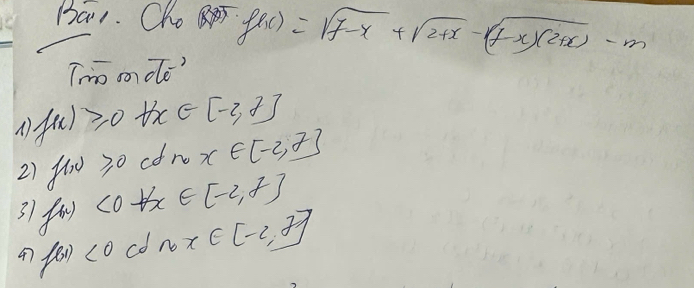 Bài 1. Cho f(x) = √(7-x) + √(2+x) - √((7-x)(2+x)) - m
Tìm m để
1) f(x) ≥ 0 ∀x ∈ [-2, 7]
2) f(x) ≥ 0 có no x ∈ [-2, 7]
3) f(x) < 0 ∀x ∈ [-2, 7]
4) f(x) < 0 có no x ∈ [-2, 7]